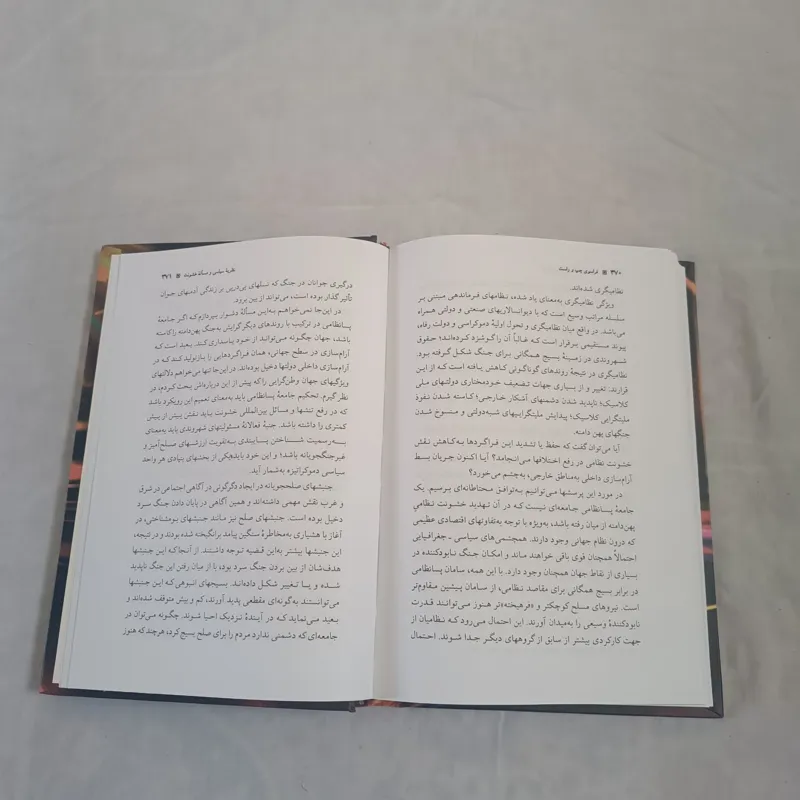 ۳۷۰ ■ فراسوی چپ و راست
نظامیگری شده‌اند.
ویژگی نظامیگری به‌معنای یاد شده، نظامهای فرماندهی مبتنی بر
سلسله مراتب وسیع است که با دیوانسالاریهای صنعتی و دولتی همراه
می‌باشد. در واقع میان نظامیگری و تحول اولیهٔ دموکراسی و دولت رفاه،
پیوند مستقیمی برقرار است که غالباً آن را گوشزد کرده‌اند؛ حقوق
شهروندی در زمینهٔ بسیج همگانی برای جنگ شکل گرفته بود.
نظامیگری در نتیجهٔ روندهای گوناگونی کاهش یافته است که از این
قرارند: تغییر و از بسیاری جهات تضعیف خودمختاری دولتهای ملی
کلاسیک؛ ناپدید شدن دشمنهای آشکار خارجی؛ کاسته شدن نفوذ
ملیتگرایی کلاسیک؛ پیدایش ملیتگراییهای شبه‌دولتی و منسوخ شدن
جنگهای پهن دامنه.
آیا می‌توان گفت که حفظ یا تشدید این فراگردها به‌کاهش نقش
خشونت نظامی در رفع اختلافها می‌انجامد؟ آیا اکنون جریان بسط
آرام‌سازی داخلی به‌مناطق خارجی، به‌چشم می‌خورد؟
در مورد این پرسشها می‌توانیم به‌توافق محتاطانه‌ای برسیم. یک
جامعهٔ پسانظامی جامعه‌ای نیست که در آن تهدید خشونت نظامی
پهن‌دامنه از میان رفته باشد، به‌ویژه با توجه به‌تفاوتهای اقتصادی عظیمی
که درون نظام جهانی وجود دارند. همچشمی‌های سیاسی - جغرافیایی
احتمالاً همچنان قوی باقی خواهند ماند و امکان جنگ نابودکننده در
بسیاری از نقاط جهان همچنان وجود دارد. با این همه، سامان پسانظامی
در برابر بسیج همگانی برای مقاصد نظامی، از سامان پیشین مقاوم‌تر
است. نیروهای مسلح کوچکتر و «فرهیخته‌تر» هنوز می‌توانند قدرت
نابودکنندهٔ وسیعی را به‌میدان آورند. این احتمال می‌رود که نظامیان از
جهت کارکردی بیشتر از سابق از گروههای دیگر جدا شوند. احتمال
نظریهٔ سیاسی و مسألهٔ خشونت ■ ۳۷۱
درگیری جوانان در جنگ که نسلهای پی‌درپی بر زندگی آدمهای جوان
تأثیر گذار بوده است، می‌تواند از بین برود.
در این‌جا نمی‌خواهم به‌این مسألهٔ دشوار بپردازم که اگر جامعهٔ
پسانظامی در ترکیب با روندهای دیگر گرایش به‌جنگ پهن‌دامنه را کاسته
کند، جهان چگونه می‌تواند از خود پاسداری کند. بعید است که
آرام‌سازی در سطح جهانی، همان فراگردهایی را بازتولید کند که در
آرام‌سازی داخلی دولتها دخیل بوده‌اند. در این‌جا تنها می‌خواهم دلالتهای
ویژگیهای جهان وطن‌گرایی را که پیش از این درباره‌اش بحث کردم، در
نظر گیرم. تحکیم جامعهٔ پسانظامی باید به‌معنای تعمیم این رویکرد باشد
که در رفع تنشها و مسائل بین‌المللی خشونت باید نقش بیش از پیش
کمتری را داشته باشد. جنبهٔ فعالانهٔ مسئولیتهای شهروندی باید به‌معنای
به‌رسمیت شناختن پایبندی به‌تقویت ارزشهای صلح‌آمیز و
غیرجنگجویانه باشد؛ و این خود باید‌یکی از بخشهای بنیادی هر واحد
سیاسی دموکراتیزه به‌شمار آید.
جنبشهای صلحجویانه در ایجاد دگرگونی در آگاهی اجتماعی در شرق
و غرب نقش مهمی داشته‌اند و همین آگاهی در پایان دادن جنگ سرد
دخیل بوده است. جنبشهای صلح نیز مانند جنبشهای بوم‌شناختی، در
آغاز با هشیاری به‌مخاطرهٔ سنگین پیامد برانگیخته شده بودند و در نتیجه،
این جنبشها بیشتر به‌این قضیه توجه داشتند. از آنجا که این جنبشها
هدف‌شان از بین بردن جنگ سرد بوده با از میان رفتن این جنگ ناپدید
شده و یا تغییر شکل داده‌اند. بسیجهای انبوهی که این جنبشها
می‌توانستند به‌گونه‌ای مقطعی پدید آورند، کم و بیش متوقف شده‌اند و
بعید می‌نماید که در آیندهٔ نزدیک احیا شوند. چگونه می‌توان در
جامعه‌ای که دشمنی ندارد مردم را برای صلح بسیج کرد، هرچند که هنوز